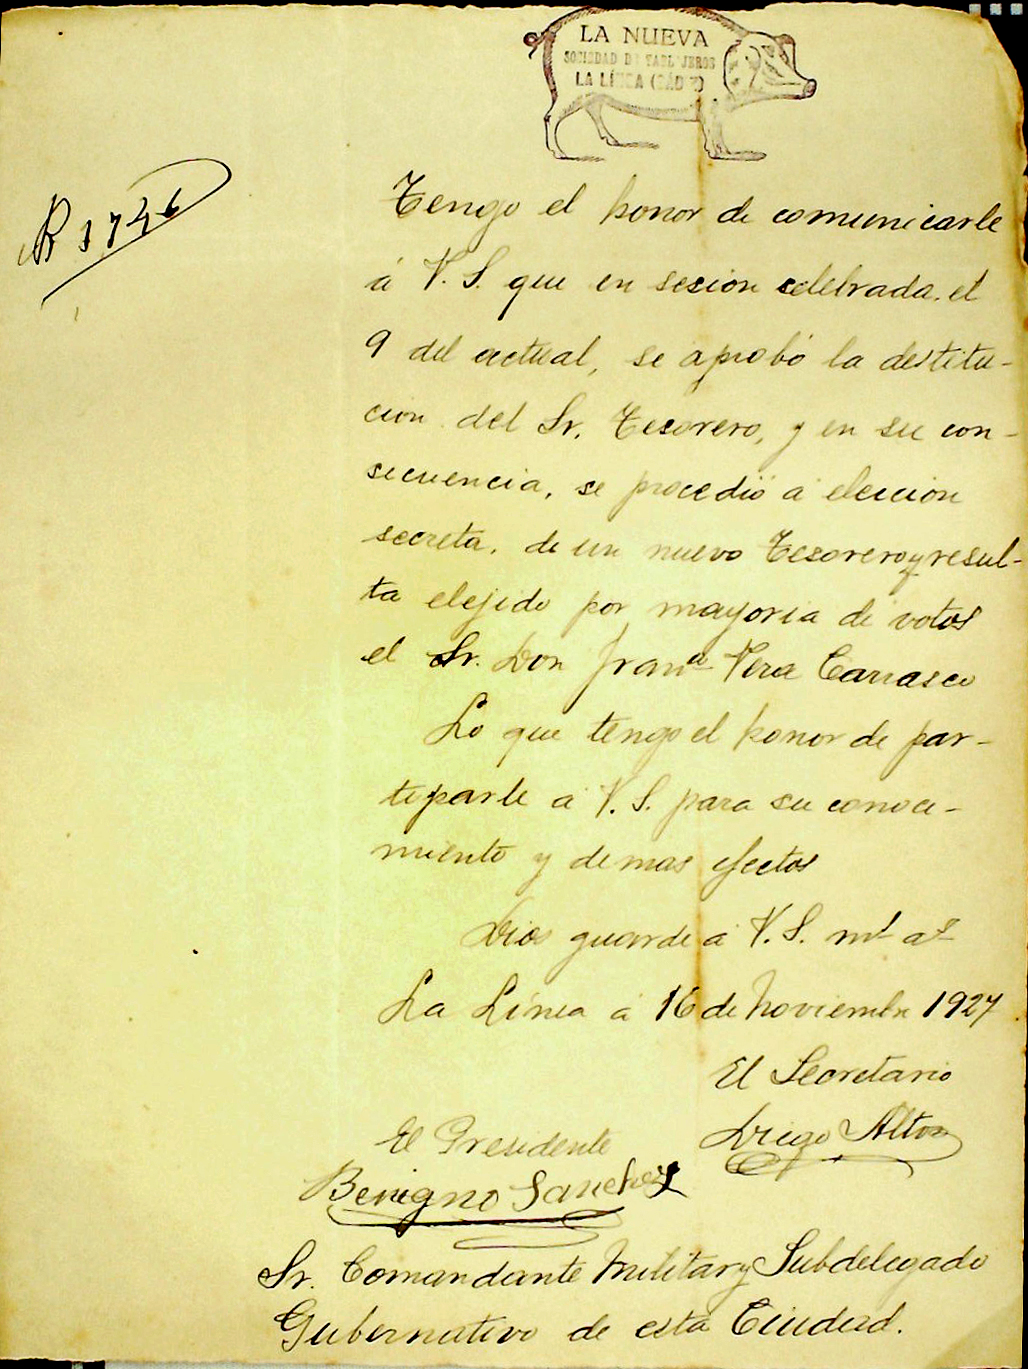 LA NUEVA
SOCIEDAD DE TABLAJEROS
LA LÍNEA (CÁDIZ)
R 1746
Tengo el honor de comunicarle
á V. S. que en sesion celebrada. el
9 del actual, se aprobó la destitu-
cion del Sr. Tesorero, y en su con-
secuencia, se procedió a elección
secreta, de un nuevo Tesorero y resul-
ta elejido por mayoria de votos
el Sr. Don Franco Vera Carrasco
Lo que tengo el honor de par-
teparle a V. S. para su conoci-
miento y demas efectos
Dios guarde a V. S. ms as
La Línea a 16 de Noviembre 1927
El Secretario
Diego Alton
El Presidente
Benigno Sanchez
Sr. Comandante Militar y Subdelegado
Gubernativo de esta Ciudad.